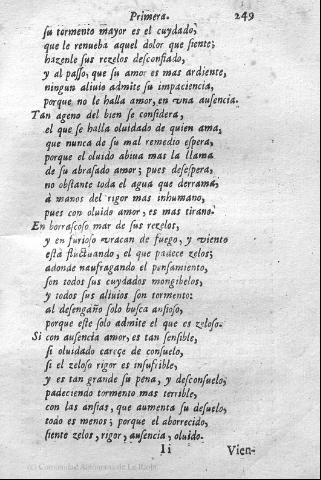 Primera. 249
ſu tormento mayor es el cuydado,
que le renueba aquel dolor que ſiente;
hazenle ſus rezelos deſconfiado,
y al paſſo, que ſu amor es mas ardiente,
ningun aliuio admite ſu impaciencia,
porque no le halla amor, en vna auſencia.
Tan ageno del bien ſe conſidera,
el que ſe halla oluidado de quien ama,
que nunca de ſu mal remedio eſpera,
porque el oluido abiua mas la llama
de ſu abraſado amor; pues deſeſpera,
no obſtante toda el agua que derrama,
à manos del rigor mas inhumano,
pues con oluido amor, es mas tirano.
En borraſcoſo mar de ſus rezelos,
y en furioſo vracan de fuego, y viento
eſtà fluctuando, el que padece zelos;
adonde naufragando el penſamiento,
ſon todos ſus cuydados mongibelos,
y todos ſus aliuios ſon tormento:
al deſengaño ſolo buſca anſioſo,
porque eſte ſolo admite el que es zeloſo.
Si con auſencia amor, es tan ſenſible,
ſi oluidado carece de conſuelo,
ſi el zeloſo rigor es inſufrible,
y es tan grande ſu pena, y deſconſuelo;
padeciendo tormento mas terrible,
con las anſias, que aumenta ſu deſuelo,
todo es menos; porque el aborrecido,
ſiente zelos, rigor, auſencia, oluido.
Ii Vien-
(c) Comunidad Autónoma de La Rioja